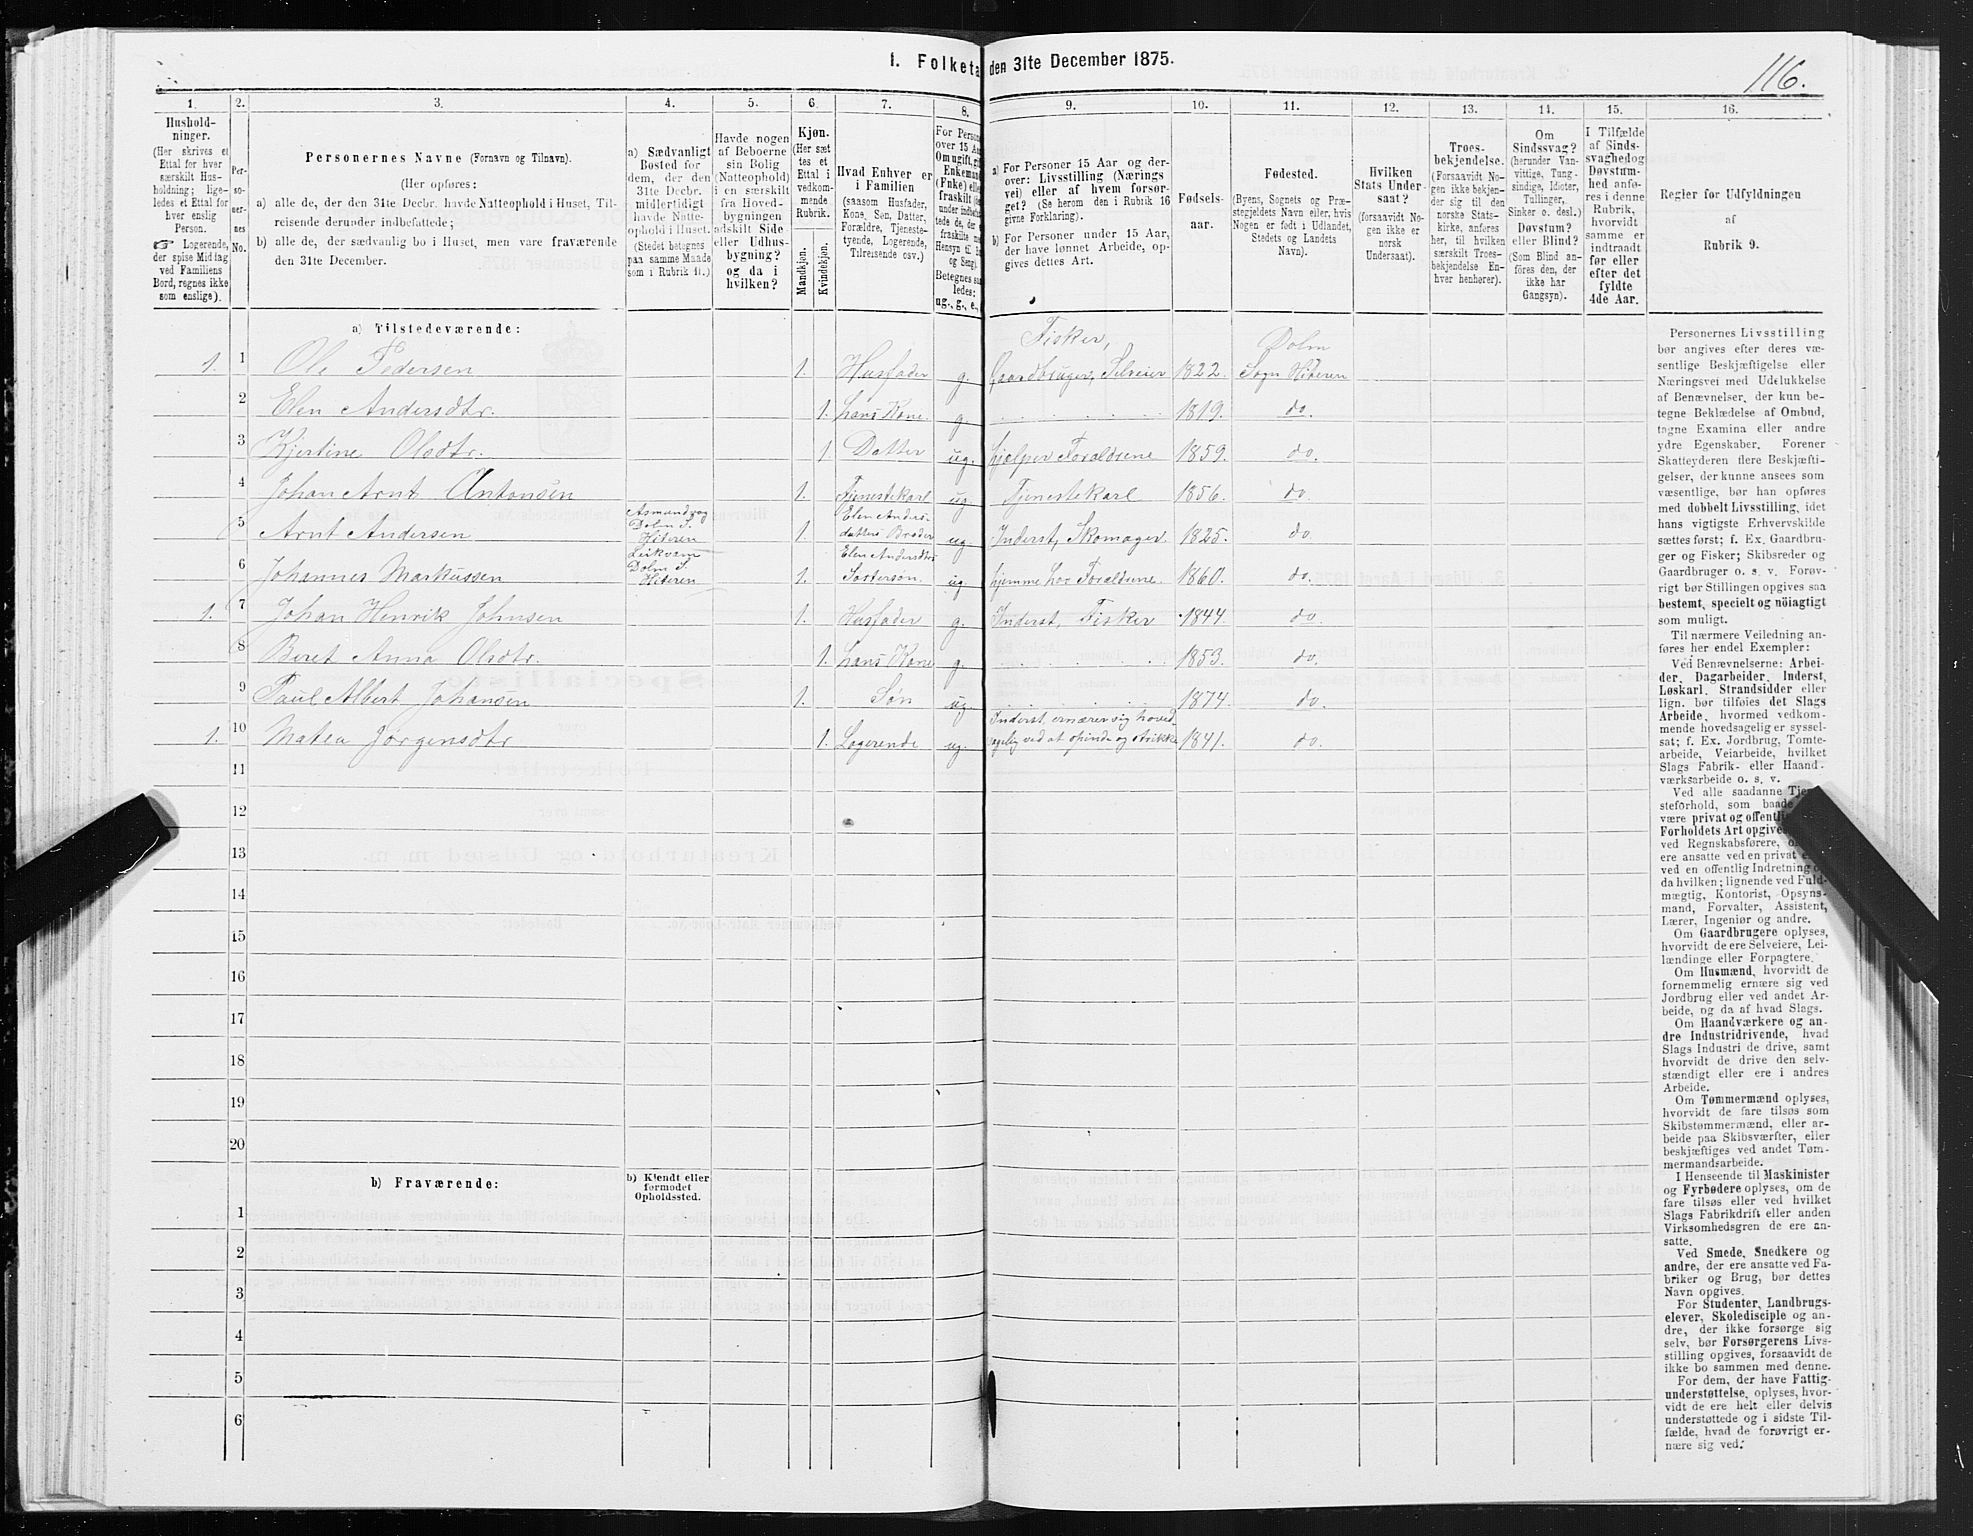 116.
1. Folketa den 31te December 1875.
1. 2. 3. 4. 5. 6. 7. 8. 9. 10. 11. 12. 13. 14. 15. 16.
Hushold-
ninger.
(Her skrives et
Ettal for hver
særskilt Hus-
holdning; lige-
ledes et Ettal for
hver enslig
Person.
☞ Logerende,
der spise Middag
ved Familiens
Bord, regnes ikke
som enslige).
Per-
so-
ner-
nes
No.
Personernes Navne (Fornavn og Tilnavn).
(Her opføres:
a) alle de, der den 31te Decbr. havde Natteophold i Huset, Til-
reisende derunder indbefattede;
b) alle de, der sædvanlig bo i Huset, men vare fraværende
den 31te December.
a) Sædvanligt
Bosted for
dem, der den
31te Decbr.
midlertidigt
havde Natte-
ophold i Huset.
(Stedet betegnes
paa samme Maade
som i Rubrik 11.)
Havde nogen
af Beboerne
sin Bolig
(Natteophold)
i en særskilt
fra Hoved-
bygningen
adskilt Side
eller Udhus-
bygning?
og da i
hvilken?
Kjøn.
(Her sæt
tes et
Ettal i
vedkom-
mende
Rubrik.
Mandkjøn.
Kvindekjøn.
Hvad Enhver er
i Familien
(saasom Husfader,
Kone, Søn, Datter,
Forældre, Tjeneste-
tyende, Logerende,
Tilreisende osv.)
For Person
over 15 Aa
Om ugift, gi
Enkemand
(Enke) elle
fraskilt (he
under indbe
tede de, der
fraskilte m
Hensyn til Bo
og Seng).
Betegnes saa
ledes:
ug., g., e.,
a) For Personer 15 Aar og der-
over: Livsstilling (Nærings
vei) eller af hvem forsør-
get? (Se herom den i Rubrik 16
givne Forklaring).
b) For Personer under 15 Aar,
der have lønnet Arbeide, op-
gives dettes Art.
Fødsels-
aar.
Fødested.
(Byens, Sognets og Præ-
stegjeldets Navn eller, hvis
Nogen er født i Udlandet,
Stedets og Landets
Navn).
Hvilken
Stats Under-
saat?
(forsaavidt No-
gen ikke er
norsk
Undersaat).
Troes-
bekjendelse.
(Forsaavidt No-
gen ikke bekjen-
der sig til den
norske Stats-
kirke, anføres
her, til hvilken
særskilt Troes-
bekjendelse En-
hver henhører).
Om
Sindssvag?
(herunder Van-
vittige, Tung-
sindige, Idioter,
Tullinger,
Sinker o. desl.)
Døvstum?
eller Blind?
(Som Blind an-
føres den, der
ikke har
Gangsyn).
I Tilfælde
af Sinds-
svaghed og
Døvstum-
hed anfø-
res i denne
Rubrik,
hvorvidt
samme er
indtraadt
før eller
efter det
fyldte
4de Aar.
Regler for Udfyldningen
af
Rubrik 9.
a) Tilstedeværende:
1. 1 Ole Pedersen 1. Husfader g. Fisker, Gaardbruger, Selveier 1822. Dolm Sogn Hiteren
2 Elen Andersdtr. 1. hans Kone. g. 1819. do.
3 Kjerstine Olsdtr. 1. Datter ug. hjælper Foraldrene 1859. do.
4 Johan Arnt Antonsen 1. Tjenestekarl ug Tjenestekarl 1856. do.
5 Arnt Andersen Dolm S. Hiteren 1. Elen Anders-
datters Broder ug. Inderst, Skomager. 1825. do
6 Johannes Markussen Leikvam Dolm S. Hiteren 1. Elen Andersdtrs
Søstersøn ug. hjemme hos Foraldrene. 1860. do.
1. 7 Johan Henrik Johnsen 1. Husfader g. Inderst, Fisker 1844. do.
8 Beret Anna Olsdtr. 1. hans Kone g. 1853. do.
9 Paul Albert Johansen 1. Søn ug. 1874. do.
1. 10 Matea Jørgensdtr 1. Logerende ug. Inderst, ernærer sig hoved-
sagelig ved at spinde og strikke 1841. do.
11
12
13
14
15
16
17
18
19
20
b) Fraværende:
b) Kjendt eller
formodet
Opholdssted.
1
2
3
4
5
6
Personernes Livsstilling
bør angives efter deres væ-
sentlige Beskjæftigelse eller
Næringsvei med Udelukkelse
af Benævnelser, der kun be-
tegne Beklædelse af Ombud,
tagne Examina eller andre
ydre Egenskaber. Forener
Skatteyderen flere Beskjæfti-
gelser, der kunne ansees som
væsentlige, bør han opføres
med dobbelt Livsstilling, idet
hans vigtigste Erhvervskilde
sættes først; f. Ex. Gaardbru-
ger og Fisker; Skibsreder og
Gaardbruger o. s. v. Forøv-
rigt bør Stillingen opgives saa
bestemt, specielt og nöiagtigt
som muligt.
Til nærmere Veiledning an-
føres her endel Exempler:
Ved Benævnelserne: Arbei-
der, Dagarbeider, Inderst,
Løskarl, Strandsidder eller
lign. bør tilføies det Slags
Arbeide, hvormed vedkom-
mende hovedsagelig er syssel-
sat; f. Ex. Jordbrug, Tomte-
arbeide, Veiarbeide, hvilket
Slags Fabrik- eller Haand-
værksarbeide o. s. v.
Ved alle saadanne Tje
steforhold, som baade
være privat og offentli
Forholdets Art opgive
ved Regnskabsførere, o
ere ansatte ved en privat e
ved en offentlig Indretning o
da hvilken; lignende ved Fuld-
mægtig, Kontorist, Opsyns-
mand, Forvalter, Assistent,
Lærer, Ingeniør og andre.
Om Gaardbrugere oplyses,
hvorvidt de ere Selveiere, Lei-
lændinge eller Forpagtere.
Om Husmænd, hvorvidt de
fornemmelig ernære sig ved
Jordbrug eller ved andet Ar-
beide, og da af hvad Slags.
Om Haandværkere og an-
dre Industridrivende, hvad
Slags Industri de drive, samt
hvorvidt de drive den selv-
stændigt eller ere i andres
Arbeide.
Om Tømmermænd oplyses,
hvorvidt de fare tilsøs som
Skibstømmermænd, eller ar-
beide paa Skibsværfter, eller
beskjæftiges ved andet Tøm-
mermandsarbeide.
I Henseende til Maskinister
og Fyrbødere oplyses, om de
fare tilsøs eller ved hvilket
Slags Fabrikdrift eller anden
Virksomhedsgren de ere an-
satte.
Ved Smede, Snedkere og
andre, der ere ansatte ved Fa-
briker og Brug, bør dettes
Navn opgives.
For Studenter, Landbrugs-
elever, Skoledisciple og an-
dre, der ikke forsørge sig
selv, bør Forsørgerens Livs-
stilling opgives, forsaavidt de
ikke bo sammen med denne.
For dem, der have Fattig-
understøttelse, oplyses, hvor-
vidt de ere helt eller delvis
understøttede og i sidste Til-
fælde, hvad de forøvrigt er-
nære sig ved.